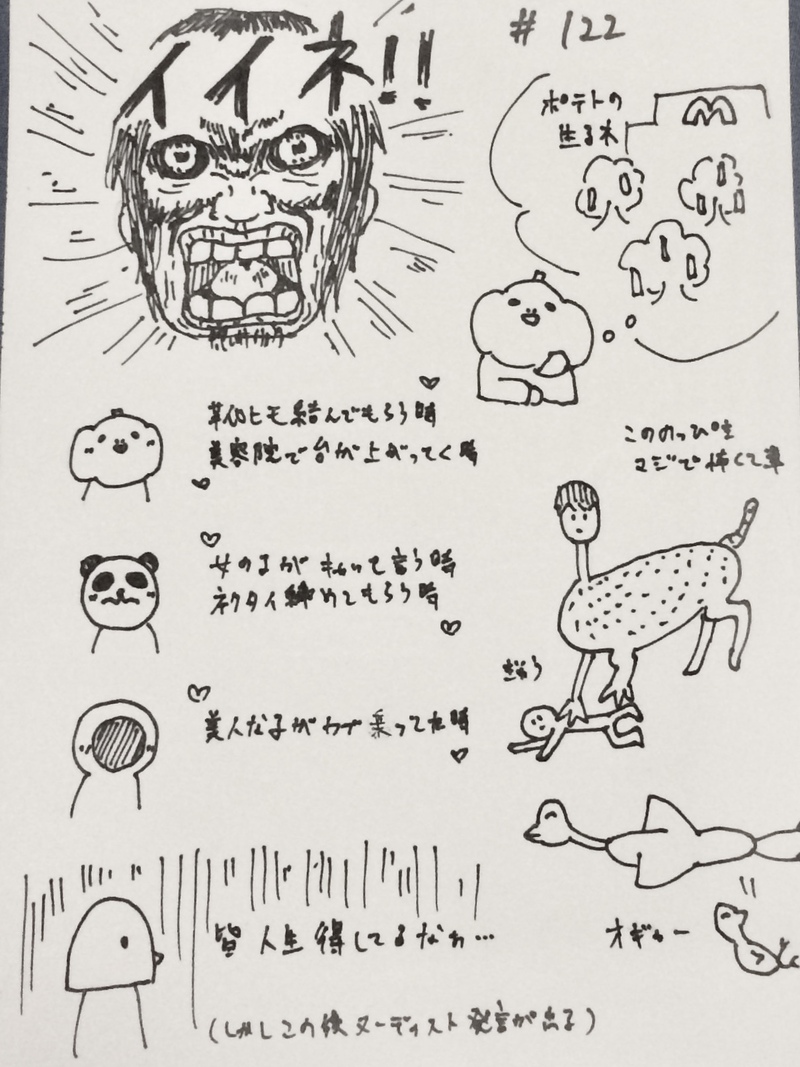 イイネ!!
#122
ポテトの
生る木
M
靴ヒモ結んでもらう時
美容院で台が上がってく時
このめっぴ生
マジで怖くて草
女の子が キャッて言う時
ネクタイ締めてもらう時
ぎゅう
美人な子がカブ乗ってた時
皆 人生 得してるなぁ…
オギャー
(しかしこの後ヌーディスト発言が出る)